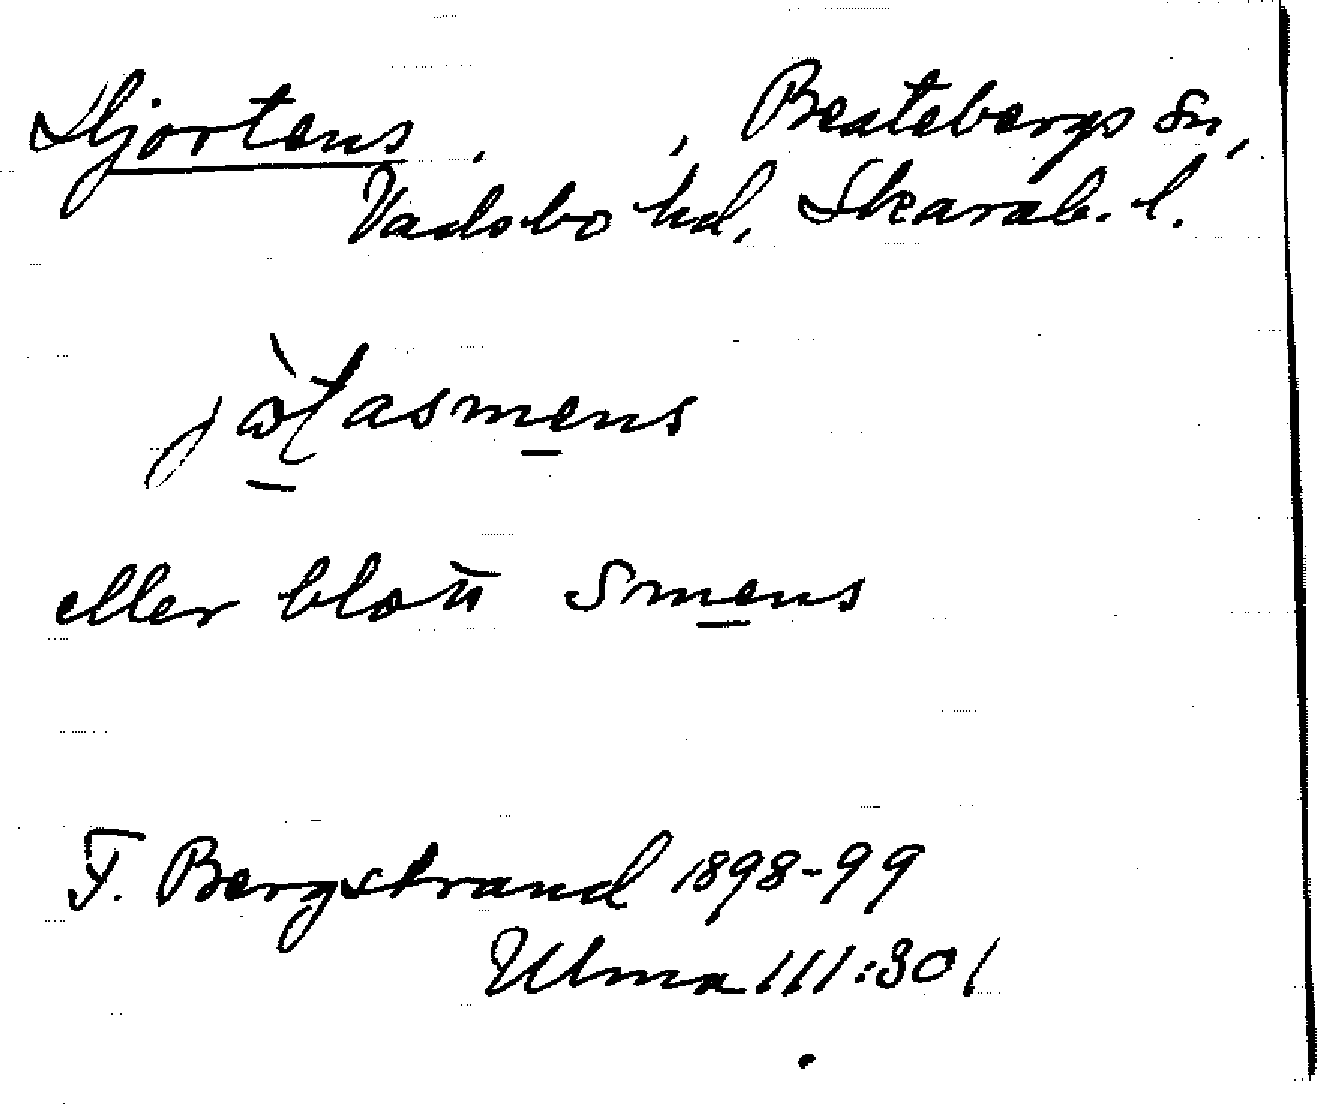 Hjortens , , Beatebergs sn,
Vadsbo hd, Skarab. l.
eller blott Smens
F. Bergstrand 1898-99
Ulma 111:301